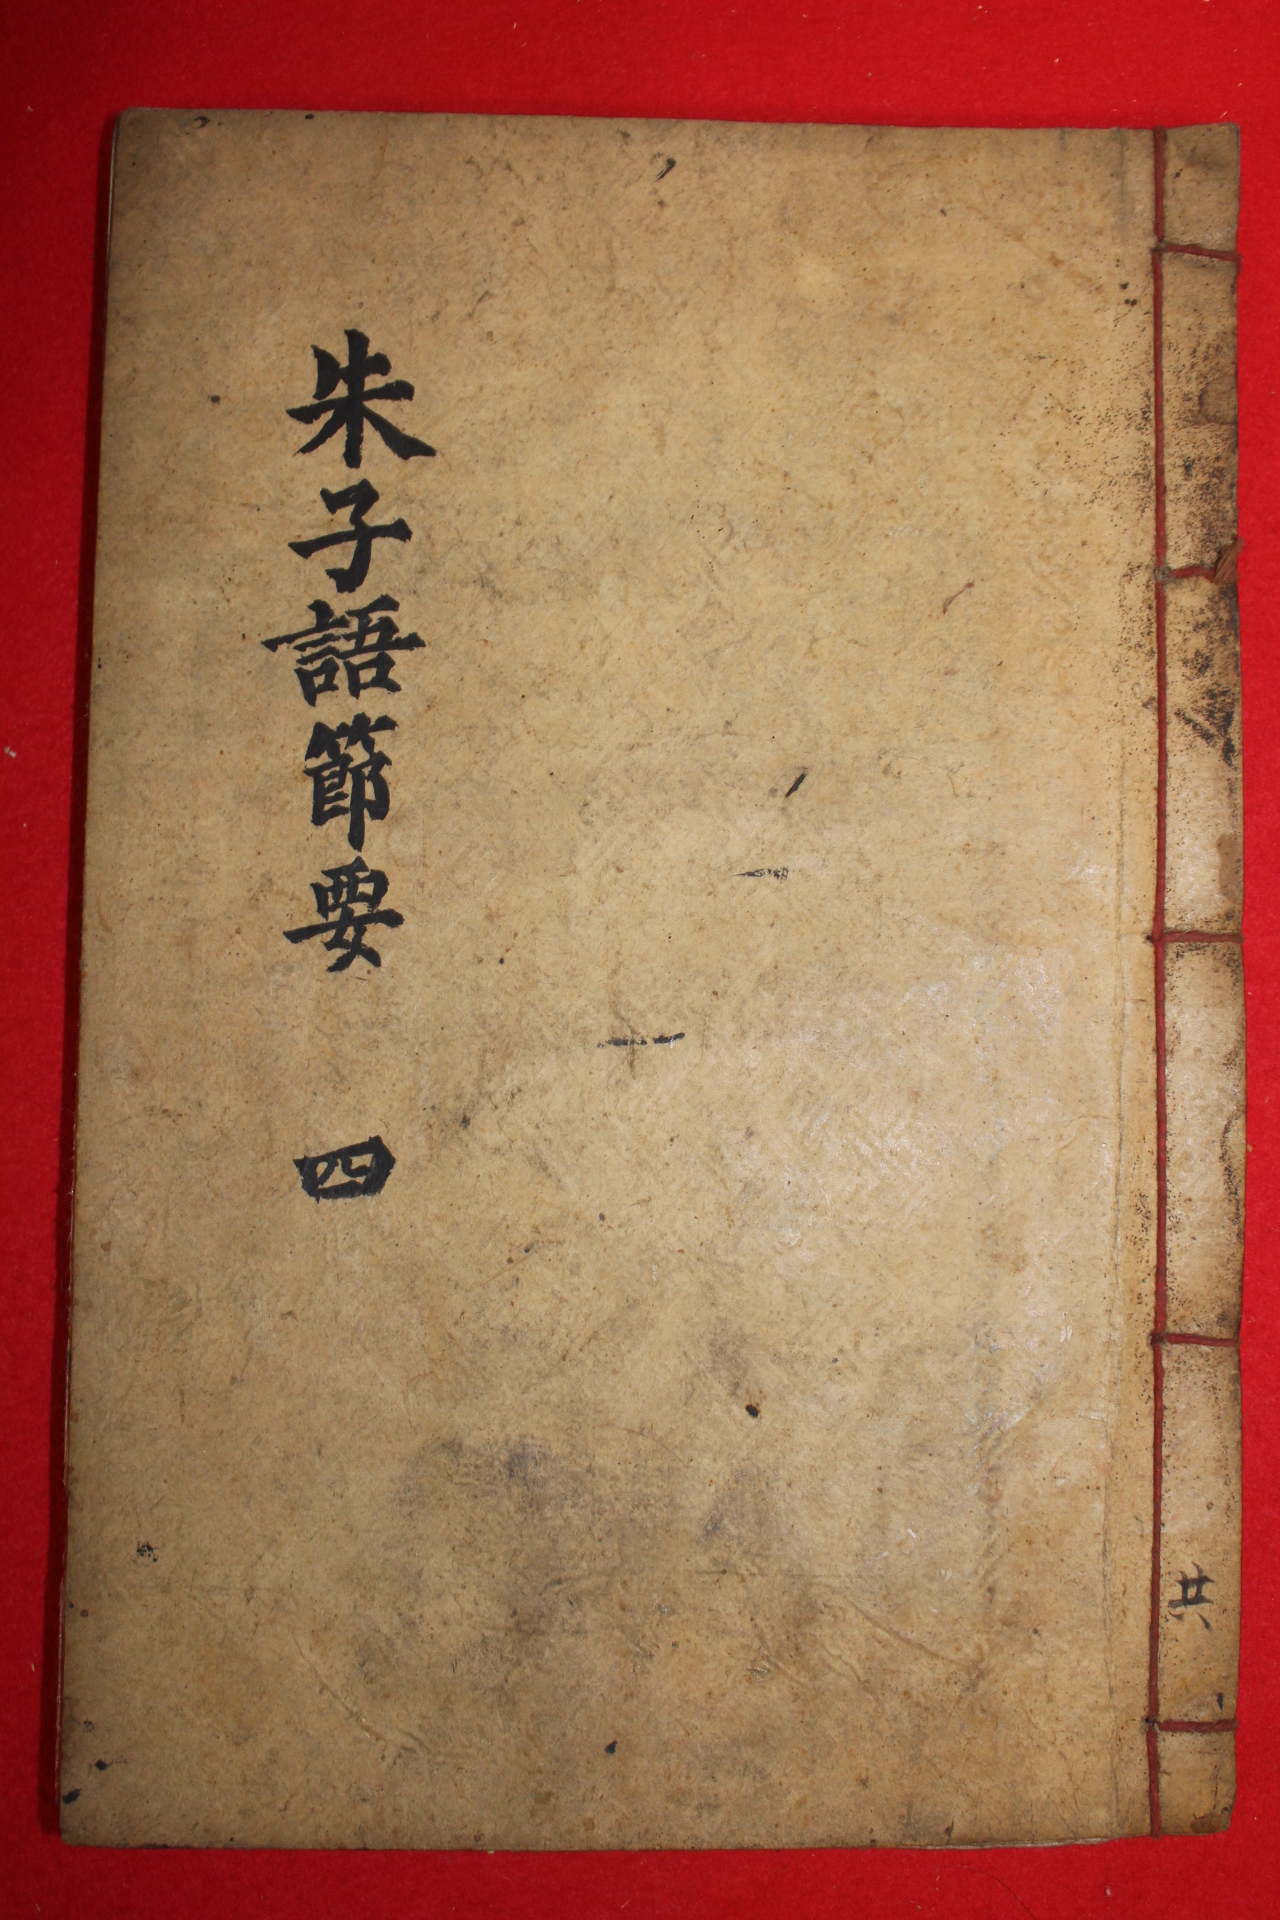 朱子語節要 四
共